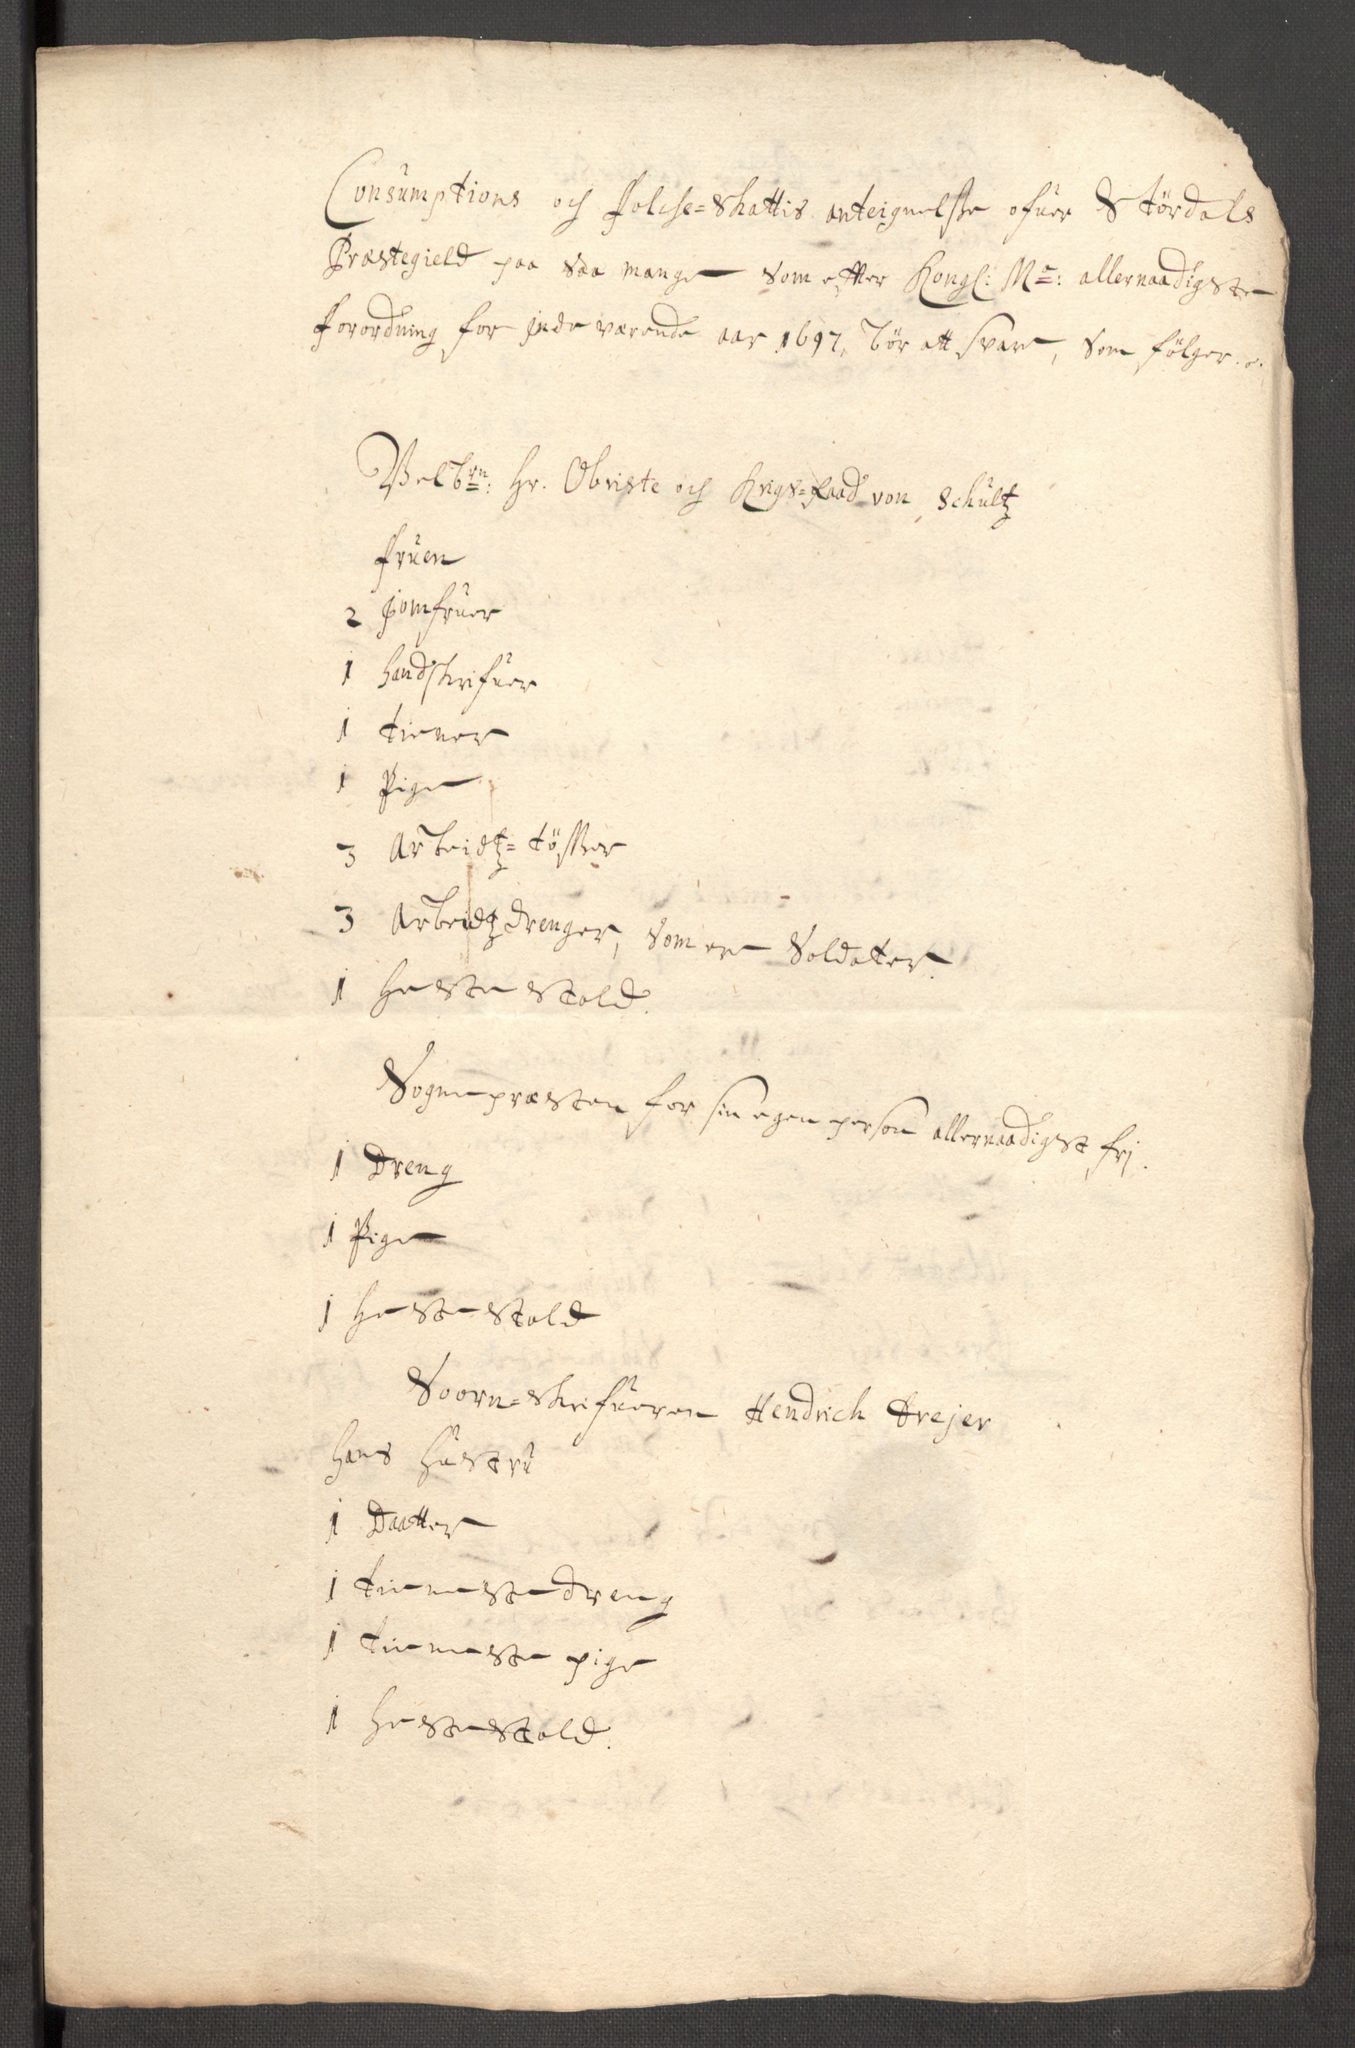 Consumptions och Folche=Skattis anteignelsse ofuer Stördals
Præstegield paa saa mange som efter Kongl: Ma: allernaadigste
forordning for inde værende aar 1697, bör att svare, som fölger.
Velbrn: Hr. Obriste och Krigs=Raad von Schultz
Fruen
2 Jomfruer
1 handskrifuer
1 tiener
1 Pige
3 Arbeidtz=tösser
3 Arbeidtzdrenger, som ere Soldater.
1 Heste stald.
Sognepræsten for sin egen person allernaadigst frj.
1 Dreng
1 Pige
1 Heste stald
Soorn=skrifueren Hendrich Drejer
hans hustru
1 Daatter
1 tienneste dreng
1 tienneste pige
1 Heste stald.